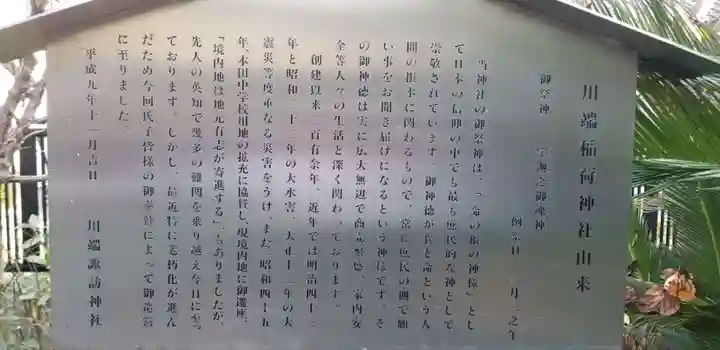 川端稲荷神社由来
御祭神 宇迦之御魂神
例祭日 二月二之午
当神社の御祭神は、「命の根の神様」とし
て日本の信仰の中でも最も庶民的な神として
崇敬されています。御神徳が食と論という人
間の根本に関わるもので、常に庶民の側で願
い事をお聞き届けになるという神様です。そ
の御神徳は実に広大無辺で商売繁盛、家内安
全等人々の生活と深く関わっております。
創建以来二百有余年、近年では明治四十三
年と昭和二十三年の大水害、大正十二年の大
震災等度重なる災害をうけ、また、昭和四十五
年、本田中学校用地の拡充に協賛し、現境内地に御遷座、
「境内地は地元有志が寄進する」もありましたが、
先人の英知で幾多の難関を乗り越え今日に至っ
ております。しかし、最近特に老朽化が進ん
だため今回氏子皆様の御奉賛によって御造営
に至りました。
平成九年十一月吉日
川端諏訪神社